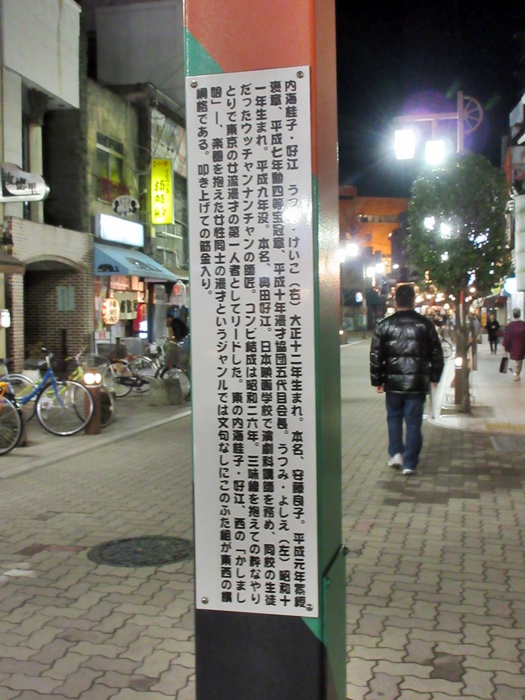 内海桂子・好江　うつみ・けいこ（右）大正十二年生まれ。本名、安藤良子。平成元年紫綬
褒章、平成七年勲四等宝冠章、平成十年漫才協団五代目会長。うつみ・よしえ（左）昭和十
一年生まれ。平成九年没。本名、奥田好江。日本映画学校で演劇科講師を務め、同校の生徒
だったウッチャンナンチャンの師匠。コンビ結成は昭和二六年。三味線を抱えての粋なやり
とりで東京の女流漫才の第一人者としてリードした。東の内海桂子・好江、西の「かしまし
娘」―、楽器を抱えた女性同士の漫才というジャンルでは文句なしにこのふた組が東西の横
綱格である。叩き上げての筋金入り。